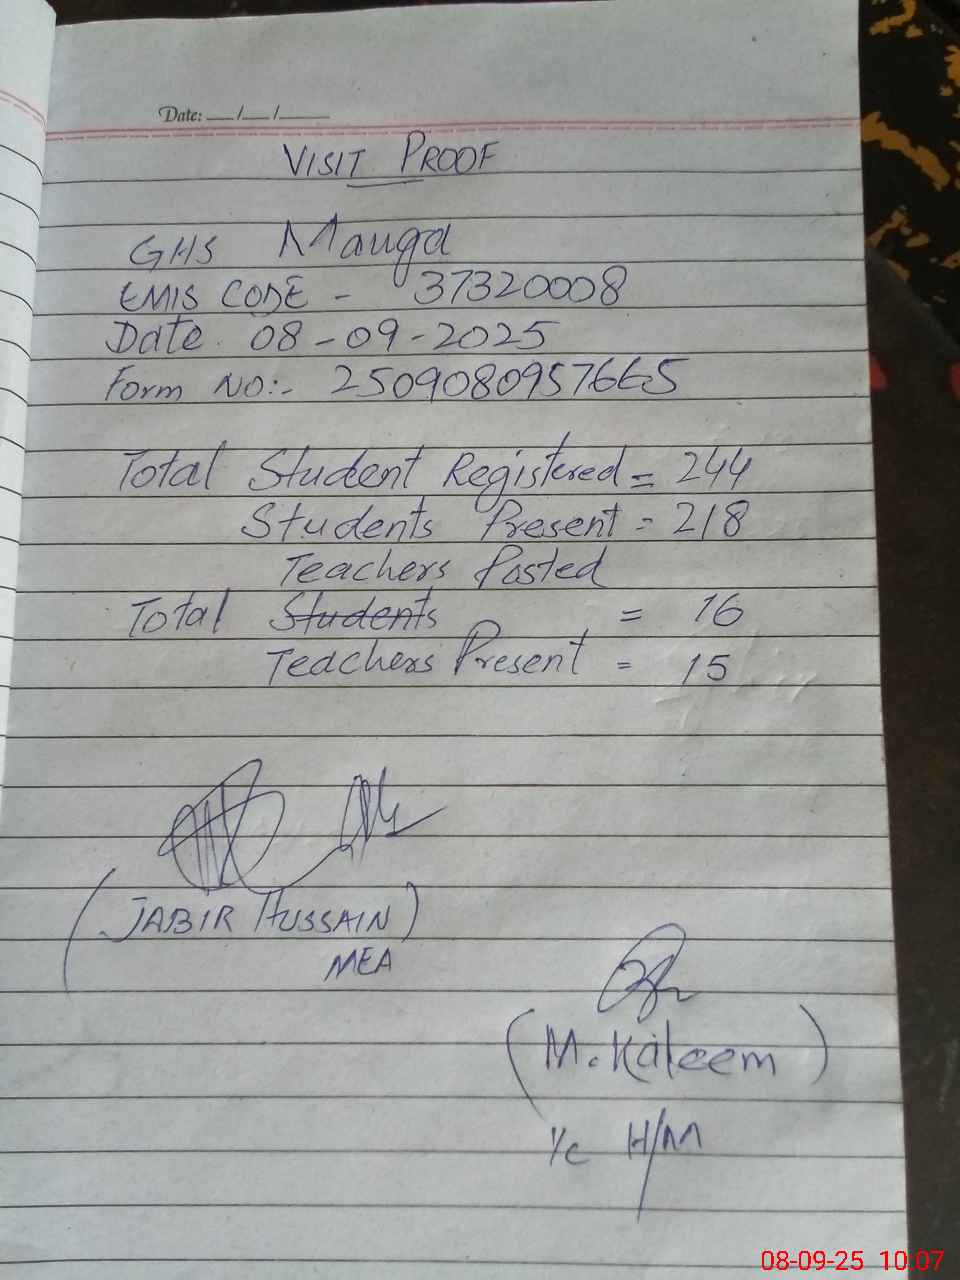 Date: __/__/____
VISIT PROOF
GHS Mauga
EMIS CODE - 37320008
Date. 08-09-2025
Form NO:- 2509080957665
Total Student Registered = 244
Students Present = 218
Teachers Posted
Total Students = 16
Teachers Present = 15
(JABIR HUSSAIN)
MEA
(M. Kaleem)
I/C H/M
08-09-25 10:07